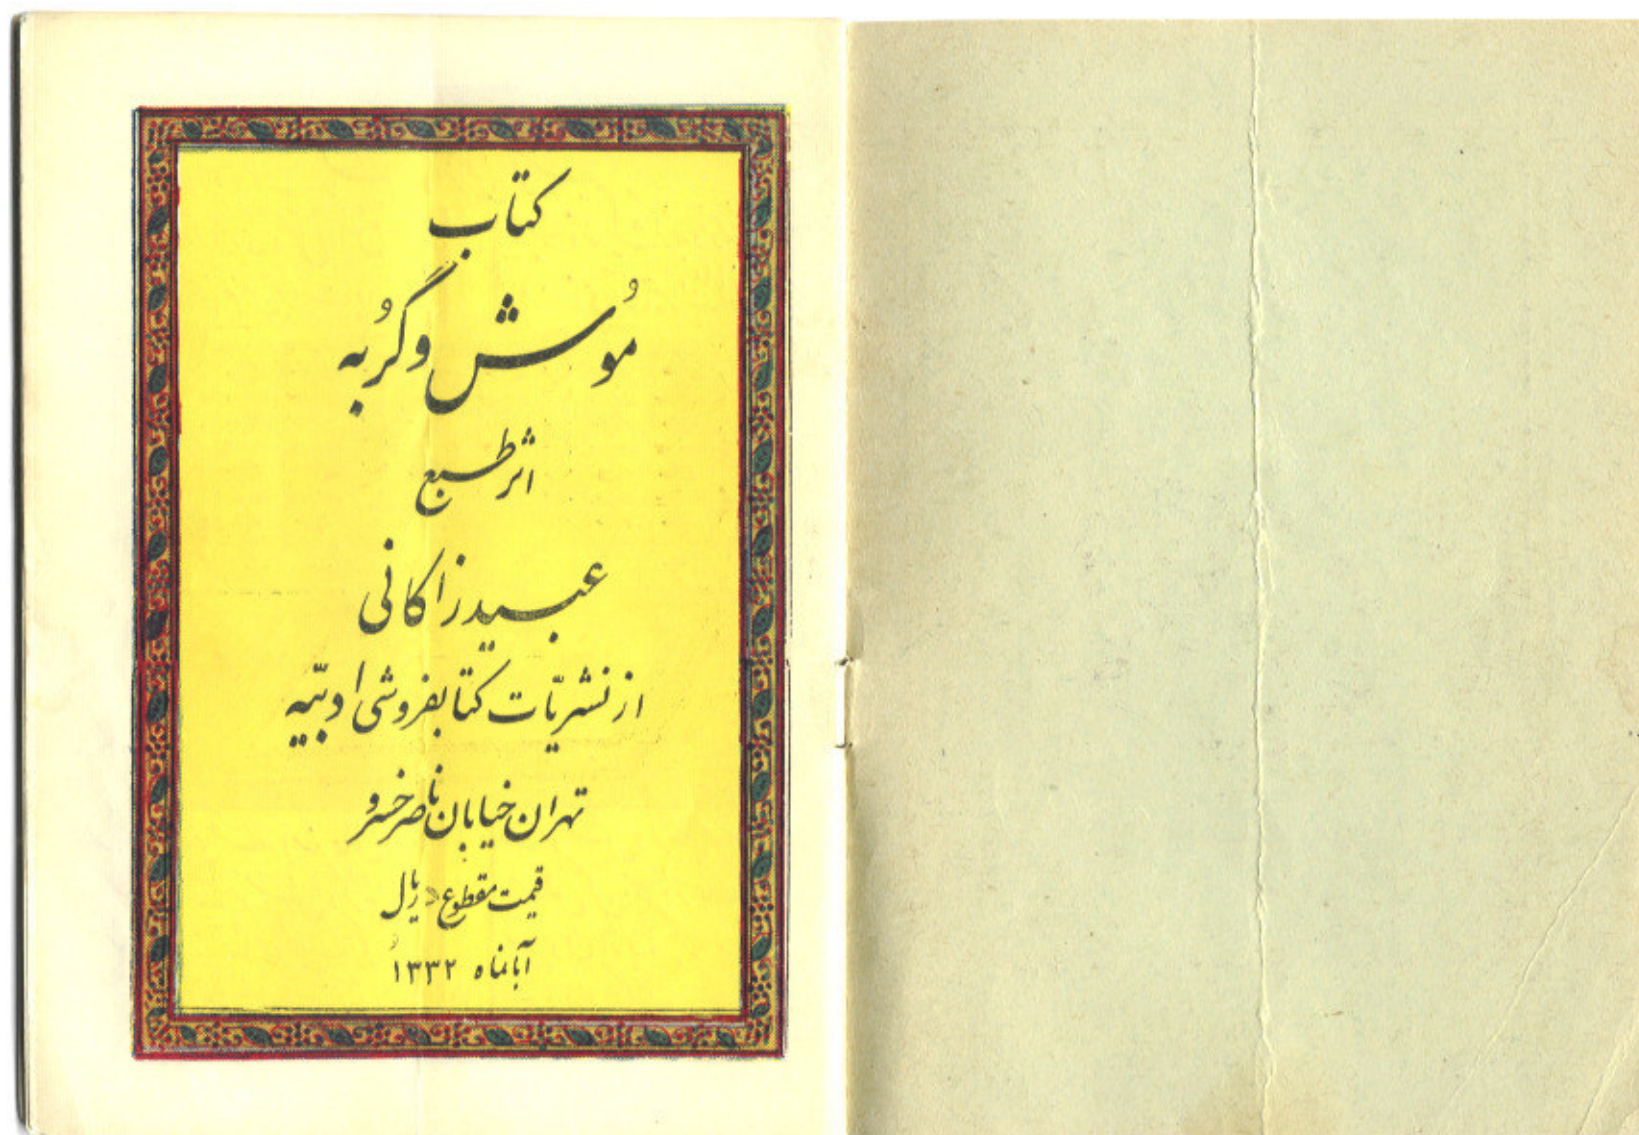 کتاب
مُوش و گُربه
اثر طبع
عبید زاکانی
از نشریّات کتابفروشی ادبیّه
تهران خیابان ناصر خسرو
قیمت مقطوع ریال
آبانماه ۱۳۳۲